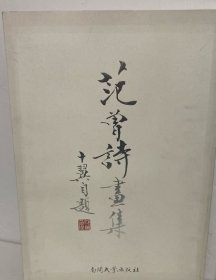 范曾詩畫集
十翼自題
南開大學出版社